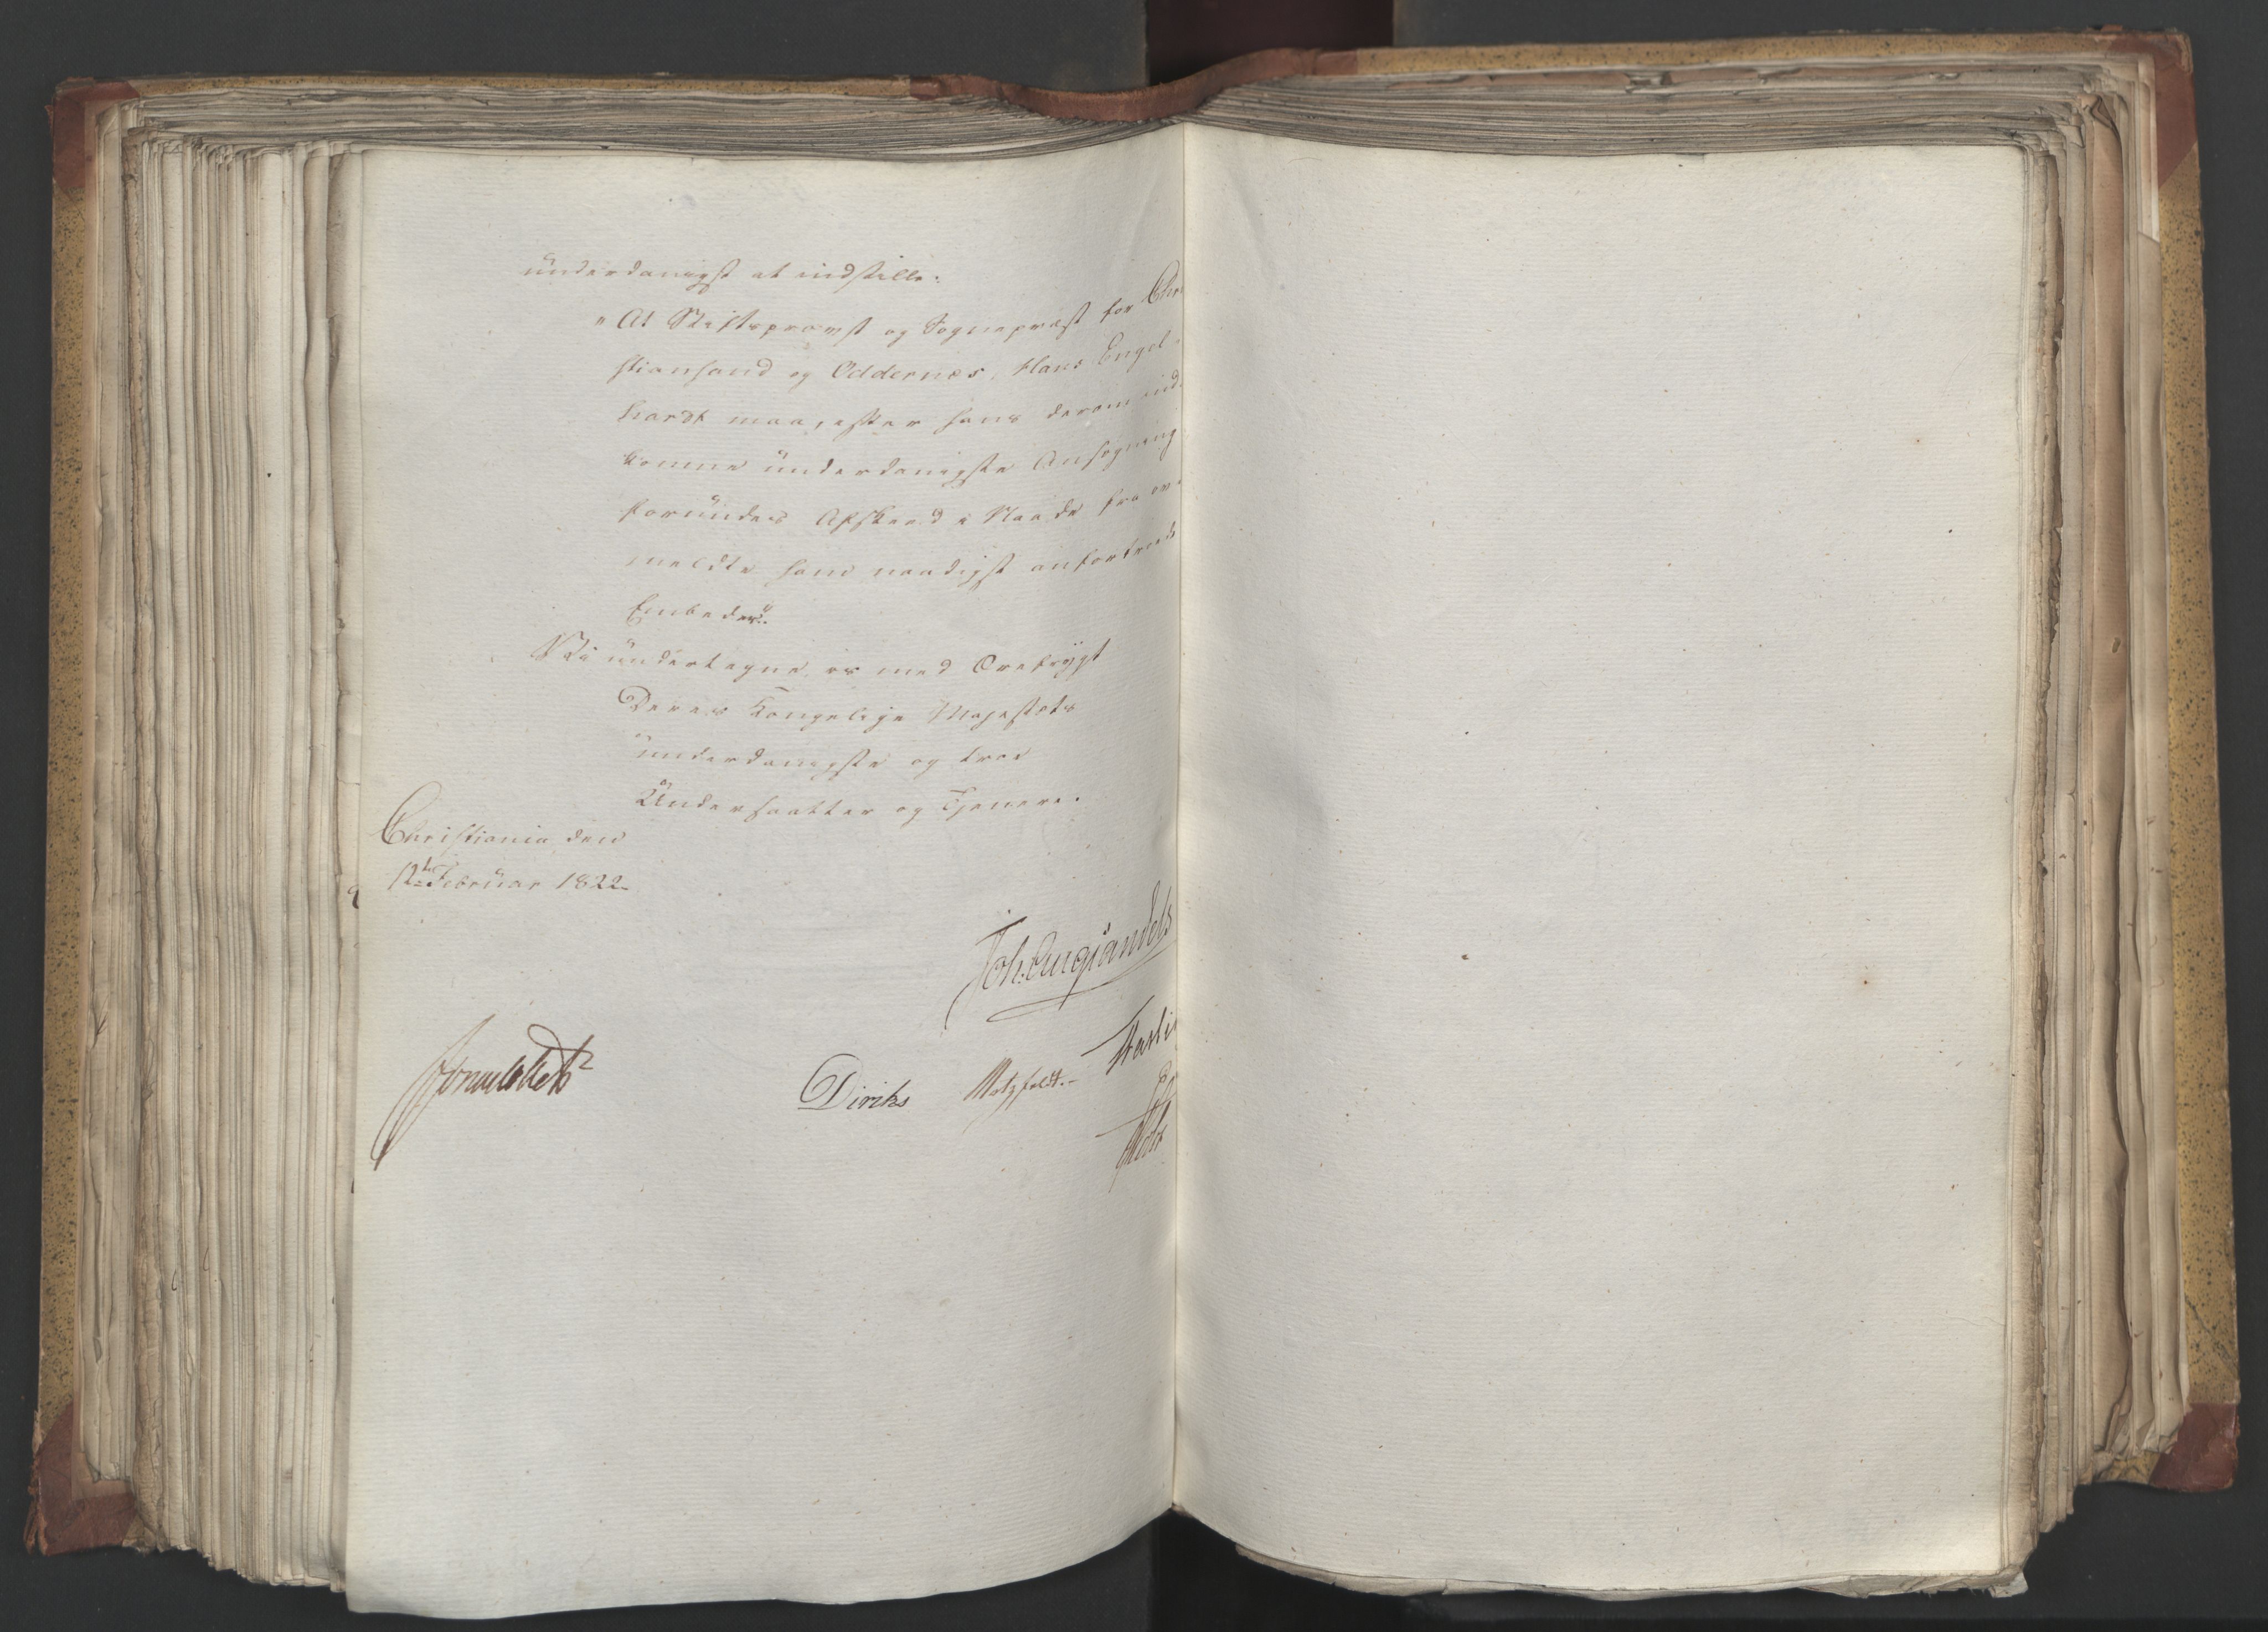 underdanigst at indstille:
"At Stiftsprovst og Sognepræst for Chri
stiansand og Oddernæs, Hans Engel
hardt maa, efter hans derom ind
komne underdanigste Ansøgning
forundes Afskeed i Naade fra ov
meldte ham naadigst anfortroede
Embeder".
Vi undertegne os med Ærefrygt
Deres Kongelige Majestæts
underdanigste og troe
Undersaatter og Tjenere.
Christiania, den
12te Februar 1822.
Joh. Aug Sandels
Sommerhielm
Diriks Motzfeldt.